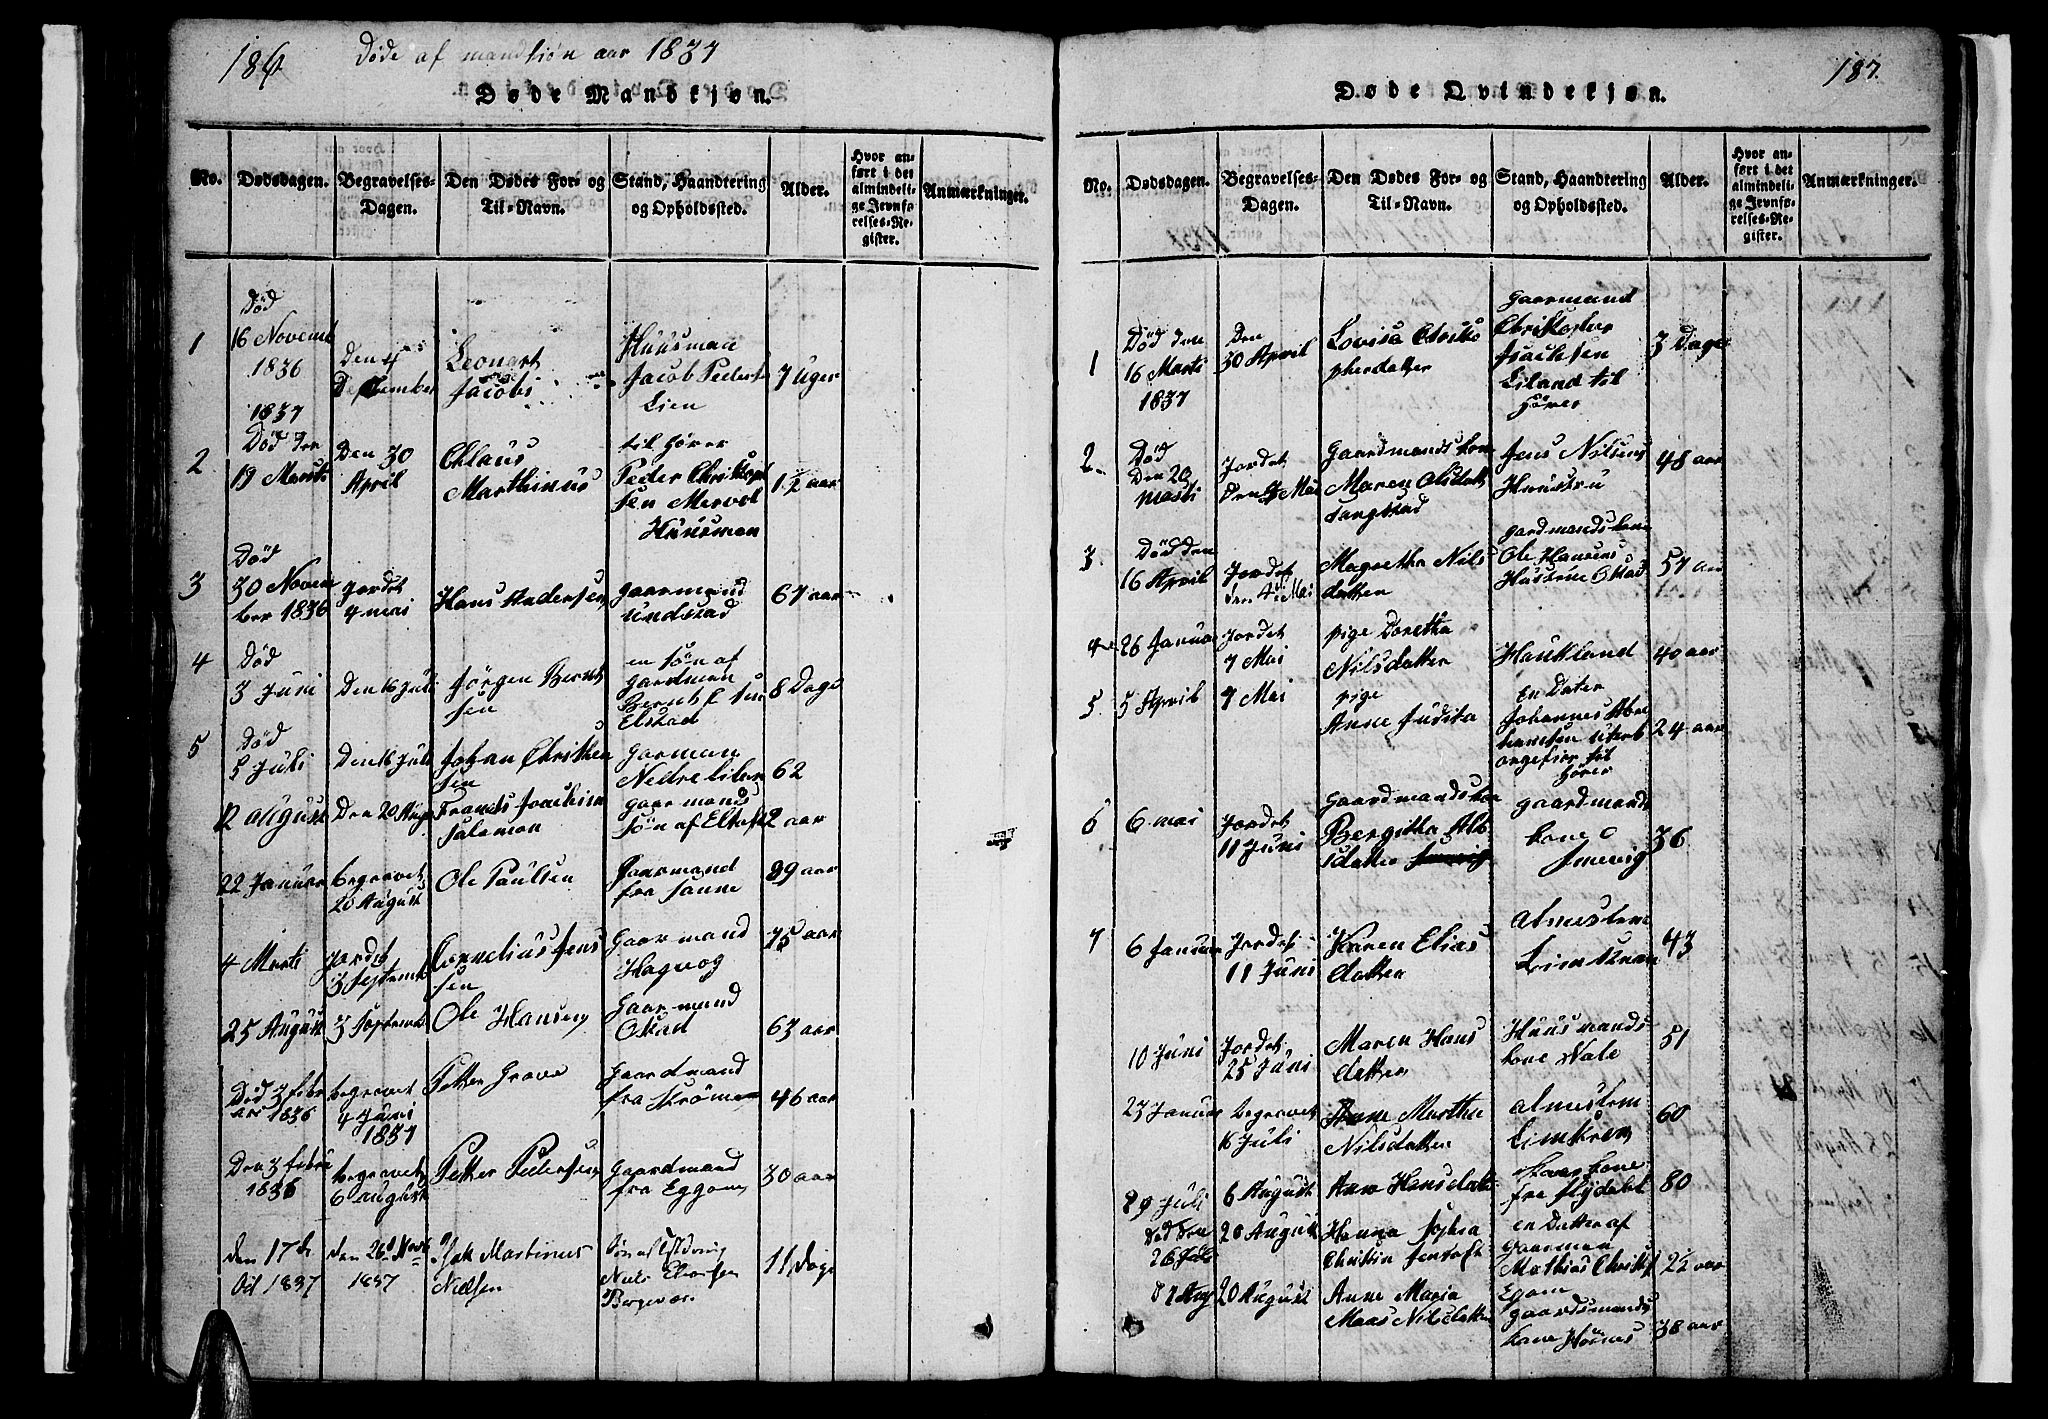 186
Døde af mandkiøn aar 1837
Døde Mandkjøn.
No.
Dødsdagen.
Begravelses-
Dagen.
Den Dødes For- og
Til-Navn.
Stand, Haandtering
og Opholdssted.
Alder.
Hvor an-
ført i det
almindeli-
ge Jevnfø-
relses-Re-
gister.
Anmærkninger.
1
Død
16 Novemb
1836
Den 4
December
Leonart
Jacobs
Huusman
Jacob Peders
Lien
7 Uger
2
1837
Død den
19 Marti
Den 30
April
Claus
Marthinus
til hører
Peder Christoph
sen Mervol
Huusman
1 1/2 aar
3
Død
30 Novem
ber 1836
Jordet
4 mai
Hans Andersen
gaarmand
undstad
67 aar
4
Død
3 Juni
Den 16 Juli
Jørgen Bernt
sen
en søn af
gardman
Bernt
Elstad
8 Dage
5
Død
5 Juli
Den 16 Juli
Johan Christen
sen
garman
Nedre
62
12 August
Den 20 Aug
Frants Joachim
Salamon
gaarmands
søn af Elstad
2 aar
22 Januar
begravet
20 August
Ole Paulsen
Gaarmand
fra Sanne
89 aar
4 Marti
Jordet
3 Septemb
Cornelius Jens
sen
Gaarmand
Hagvog
75 aar
25 August
3 Septemb
Ole Hansen
Gaarmand
Okstad
63 aar
Død 3 febru
ari 1836
begravet
4 Juni
1837
Petter Grave
Gaardmand
fra Strømen
46 aar
Den 3 febru
1836
begravet
6 august
Petter Pedersen
Gaardmand
fra Eggom
30 aar
den 17 d
Oct 1837
den 26d Novb
1837
Isak Martinus
Nielsen
Søn af
Niels
Bergevær
11 Dage
187.
Døde Qvindekjøn.
No.
Dødsdagen.
Begravelses-
Dagen.
Den Dødes For- og
Til-Navn.
Stand, Haandtering
og Opholdssted.
Alder.
Hvor an-
ført i det
almindeli-
ge Jevnfø-
relses-Re-
gister.
Anmærkninger.
1
Død den
16 Marti
1837
Den
30 April
Lovisa Christo
pherdatter
gaarmand
Christopher
Isachsen
Liland til
hører
3 Dage
2
Død
Den 20
marti
Jordet
Den 4 Mai
Gaardmands kone
Maren Olsdatt
Jens Nilsens
Huustru
48 aar
3
Død den
16 April
Jordet
den 4 Mai
Magretha Nils
datter
gardmands kone
Ole Hansens
Hustrue
57 aar
4
26 Januar
Jordet
7 Mai
pige Doretha
Nilsdatter
Haukland
40 aar
5
5 April
7 Mai
pige
Anne Judita
En Dater
Johannes Abra
hamsen
til
hører
24 aar
6
6 mai
Jordet
11 Juni
Gaardmandskone
Bergitha
datter
gaardmands
kone
Smervig
36
7
6 Januar
Jordet
11 Juni
Karen Elias
datter
almuslem
43
10 Juni
Jordet
25 Juni
Maren Hans
datter
Huusmands
kone Vale
51
23 Januar
begravet
16 Juli
Anne Martha
Nilsdatter
almuslem
60
29 Juli
6 August
Anne Hansdatter
kone
80
død den
26 Juli
20 August
Hanna Sophia
Christin
en Datter af
gaarman
Mathias Christ
Egom
2 1/2 aar
7 Aug
20 August
Anne Maria
Maas Nilsdatter
gaardmands
kone
38 aar